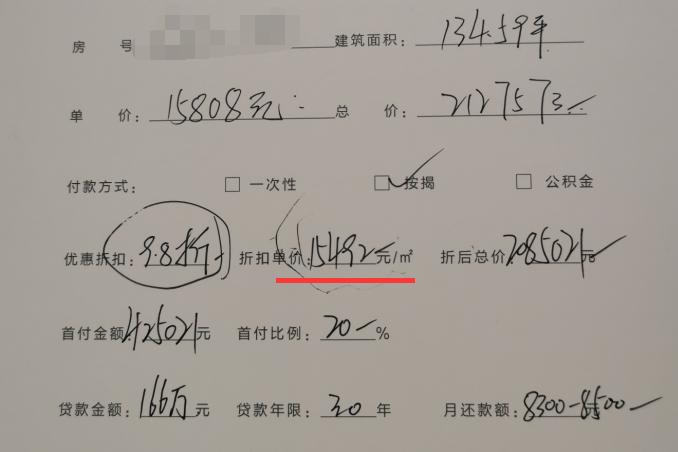 房 号 建筑面积: 134.59平
单 价: 15808元 总 价: 2127573
付款方式: □ 一次性 ☑ 按揭 □ 公积金
优惠折扣: 9.8折 折扣单价: 15492元/㎡ 折后总价: 2085021元
首付金额: 425021元 首付比例: 20%
贷款金额: 166万元 贷款年限: 30年 月还款额: 8300-8500